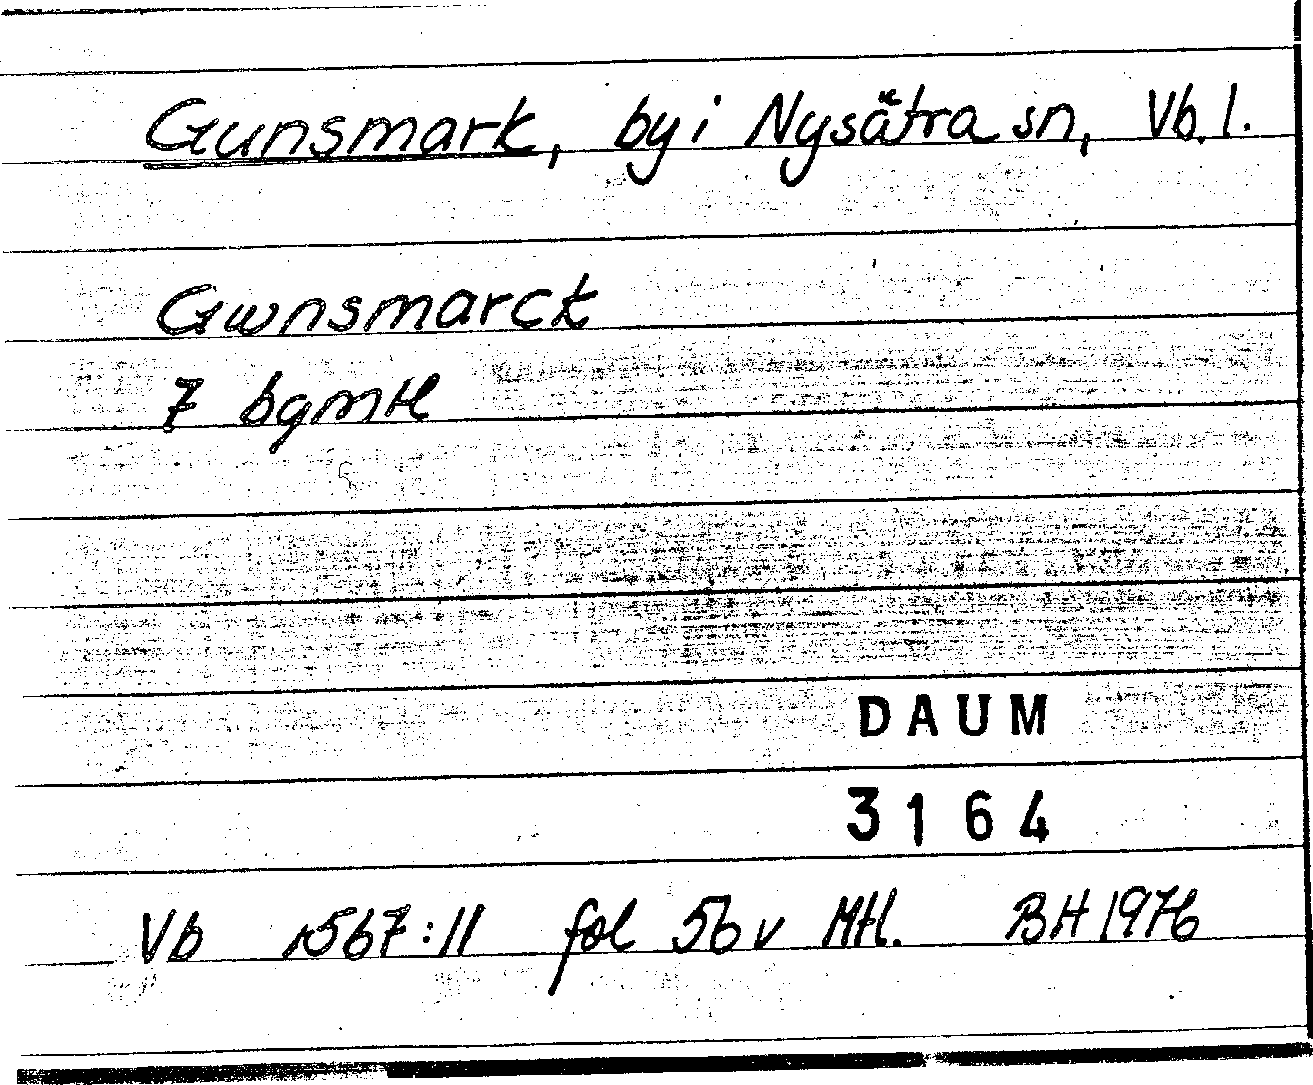 Gunsmark, by i Nysätra sn, Vb. l.
Gwnsmarck
7 bgmtl
DAUM
3164
Vb 1567:11 fol 56 v Mtl. BH 1976